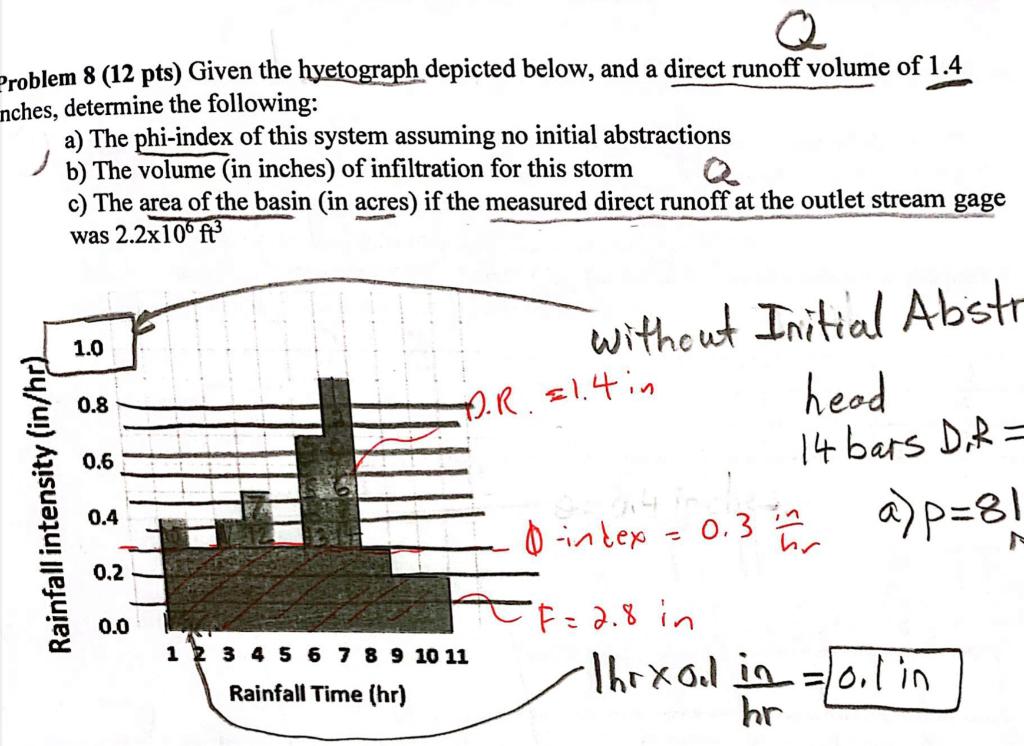 Q
Problem 8 (12 pts) Given the hyetograph depicted below, and a direct runoff volume of 1.4
nches, determine the following:
a) The phi-index of this system assuming no initial abstractions
b) The volume (in inches) of infiltration for this storm
Q
c) The area of the basin (in acres) if the measured direct runoff at the outlet stream gage
was 2.2x10⁶ ft³
without Initial Abstr
1.0
D.R. = 1.4 in
head
0.8
14 bars D.R =
0.6
0.4
a) p=81
Φ-index = 0.3 in/hr
0.2
F = 2.8 in
0.0
1 2 3 4 5 6 7 8 9 10 11
1hr x 0.1 in/hr = 0.1 in
Rainfall Time (hr)
Rainfall intensity (in/hr)